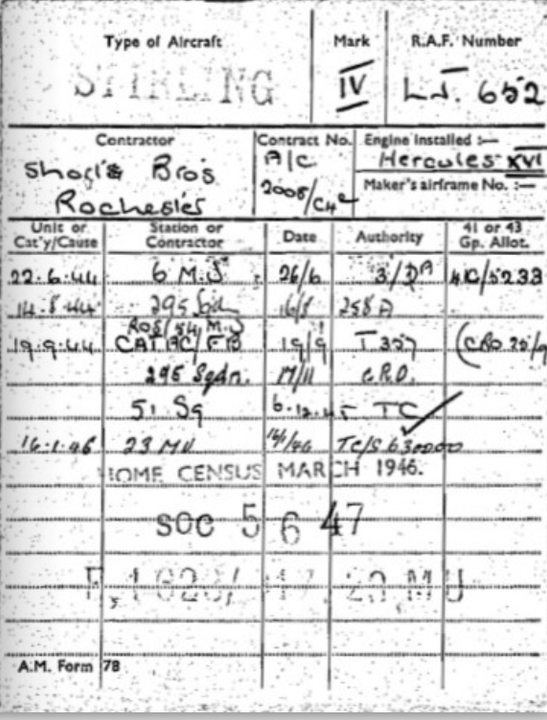 Type of Aircraft Mark R.A.F. Number
STIRLING IV LJ. 652
Contractor Contract No. Engine Installed :—
Short's Bros Rochester A/C 2008/C4c Hercules XVI
Maker's airframe No. :—
Unit or Cat'y/Cause Station or Contractor Date Authority 41 or 43 Gp. Allot.
22.6.44 6 M.U 26/6 41C/5233
14.8.44 295 Sqn 16/8 258A
ROS/54 M.U
19.9.44 CAT AC/FB 19/9 T357
Sqdn. 17/11 C.R.D.
51 Sq TC
16.1.46 23 MU TC/S
HOME CENSUS MARCH 1946.
SOC 5 6 47
23 MU
A.M. Form 78